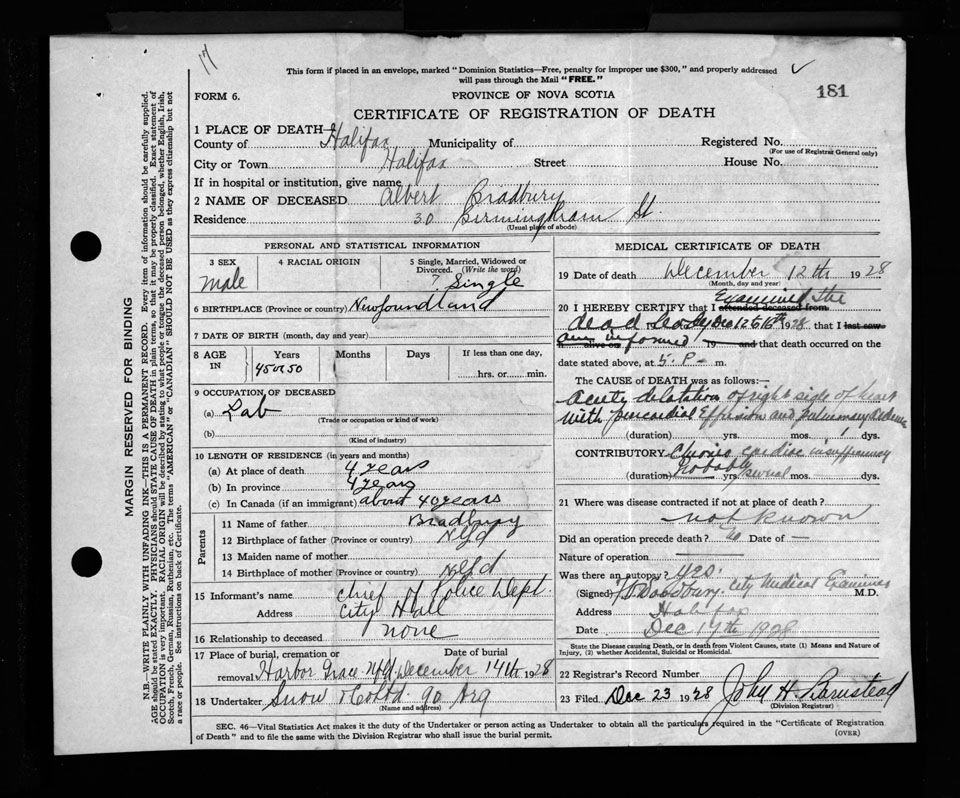 17
This form if placed in an envelope, marked "Dominion Statistics—Free, penalty for improper use $300," and properly addressed
will pass through the Mail "FREE."
181
FORM 6.
PROVINCE OF NOVA SCOTIA
CERTIFICATE OF REGISTRATION OF DEATH
1 PLACE OF DEATH—
County of Halifax Municipality of Registered No.
(For use of Registrar General only)
City or Town Halifax Street House No.
If in hospital or institution, give name
2 NAME OF DECEASED Albert Bradbury
Residence 30 Birmingham St.
(Usual place of abode)
PERSONAL AND STATISTICAL INFORMATION
3 SEX
Male
4 RACIAL ORIGIN
5 Single, Married, Widowed or
Divorced. (Write the word)
? Single
6 BIRTHPLACE (Province or country) Newfoundland
7 DATE OF BIRTH (month, day and year)
8 AGE IN
Years
45 or 50
Months
Days
If less than one day,
hrs. or min.
9 OCCUPATION OF DECEASED
(a) Lab
(Trade or occupation or kind of work)
(b)
(Kind of industry)
10 LENGTH OF RESIDENCE (in years and months)
(a) At place of death 4 years
(b) In province 4 years
(c) In Canada (if an immigrant) about 40 years
Parents
11 Name of father Bradbury
12 Birthplace of father (Province or country) Nfld
13 Maiden name of mother
14 Birthplace of mother (Province or country) Nfld
15 Informant's name Chief of Police Dept.
Address City Hall
16 Relationship to deceased none
17 Place of burial, cremation or
removal Harbor Grace Nfld
Date of burial
December 14th 1928
18 Undertaker Snow & Co Ltd. 90 Arg
(Name and address)
MEDICAL CERTIFICATE OF DEATH
19 Date of death December 12th 1928
(Month, day and year)
20 I HEREBY CERTIFY that I attended deceased from Examined the
dead body Dec 12 1928 that I last saw
am informed 19 and that death occurred on the
date stated above, at 5 P — m.
The CAUSE OF DEATH was as follows:—
Acute dilatation of right side of heart
with pericardial Effusion and pulmonary Oedema
(duration) yrs. mos. 1 dys.
CONTRIBUTORY Chronic cardiac insufficiency
Probably several
(duration) yrs. mos. dys.
21 Where was disease contracted if not at place of death?
not known
Did an operation precede death? No Date of —
Nature of operation
Was there an autopsy? yes.
(Signed) City Medical Examiner M.D.
Address Halifax
Date Dec 17th 1928
State the Disease causing Death, or in death from Violent Causes, state (1) Means and Nature of
Injury, (2) whether Accidental, Suicidal or Homicidal.
22 Registrar's Record Number
23 Filed Dec 23 1928 John H Barnstead
(Division Registrar)
SEC. 46—Vital Statistics Act makes it the duty of the Undertaker or person acting as Undertaker to obtain all the particulars required in the "Certificate of Registration
of Death" and to file the same with the Division Registrar who shall issue the burial permit.
(OVER)
MARGIN RESERVED FOR BINDING
N.B.—WRITE PLAINLY WITH UNFADING INK—THIS IS A PERMANENT RECORD. Every item of information should be carefully supplied.
AGE should be stated EXACTLY. PHYSICIANS should STATE CAUSE OF DEATH in plain terms, so that it may be properly classified. Exact statement of
OCCUPATION is very important. RACIAL ORIGIN will be described by stating to what people or tongue the deceased person belonged, whether English, Irish,
Scotch, French, German, Russian, Ruthenian, etc. The terms "AMERICAN" or "CANADIAN" SHOULD NOT BE USED as they express citizenship but not
a race or people. See instructions on back of Certificate.